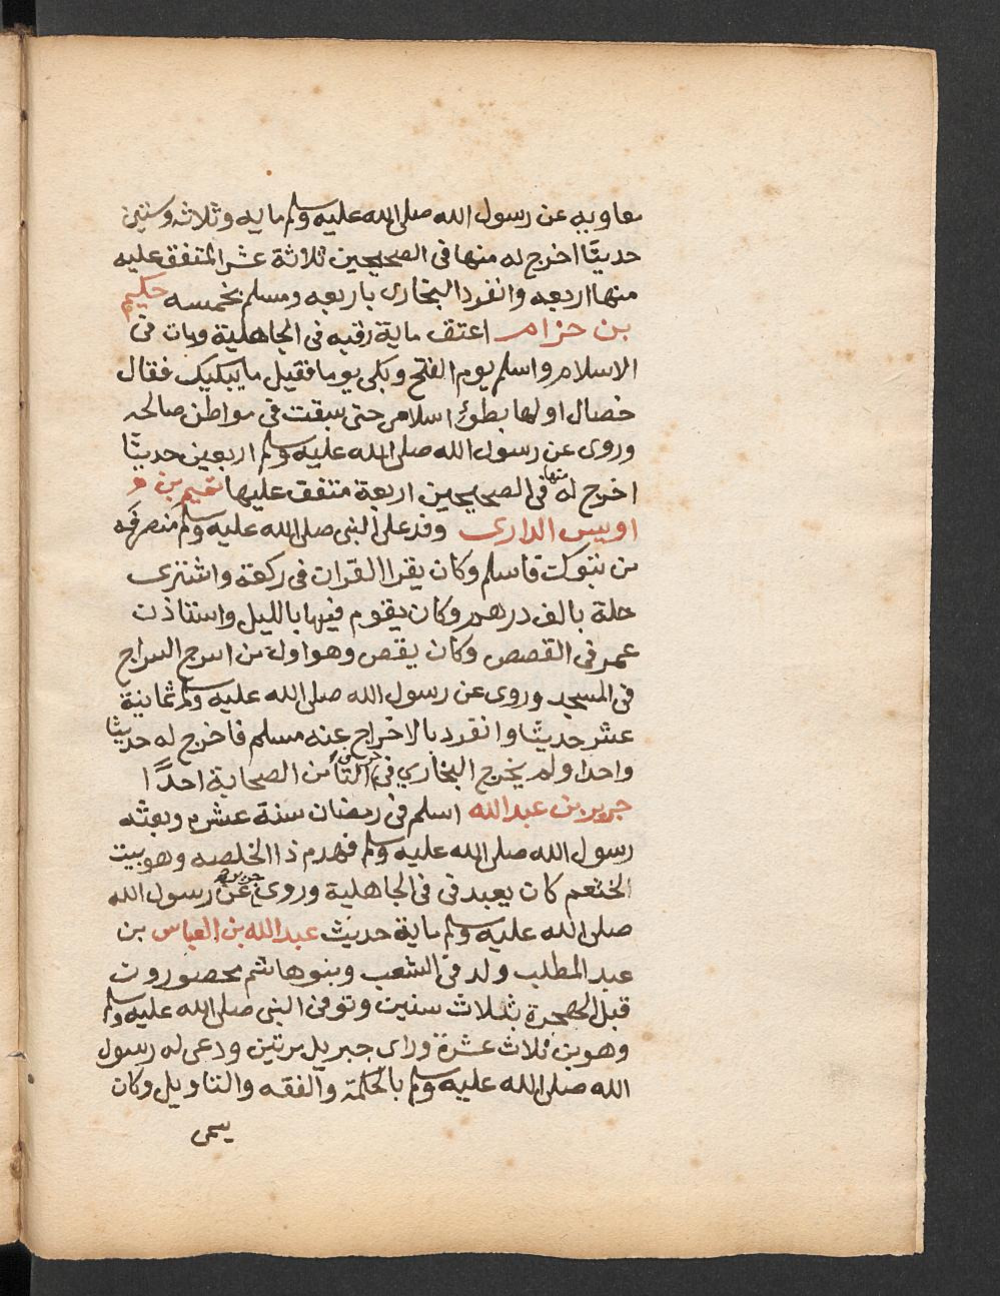 معاويه عن رسول الله صلى الله عليه وسلم مايه وثلاثه وستين
حديثًا اخرج له منها فى الصحيحين ثلاثة عشر المتفق عليه
منها اربعه وانفرد البخارى باربعه ومسلم بخمسه حكيم
بن حزام اعتق ماية رقبه فى الجاهلية وبات فى
الاسلام واسلم يوم الفتح وبكى يوما فقيل ما يبكيك فقال
خصال اولها بطوء اسلامى حتى سبقت فى مواطن صالحه
وروى عن رسول الله صلى الله عليه وسلم اربعين حديثًا
اخرج له منها فى الصحيحين اربعة متفق عليها تميم بن
اويس الدارى وفد على النبى صلى الله عليه وسلم منصرفه
من تبوك فاسلم وكان يقرا القران فى ركعة واشترى
حلة بالف درهم وكان يقوم فيها بالليل واستاذن
عمر فى القصص وكان يقص وهو اول من اسرج السراج
فى المسجد وروى عن رسول الله صلى الله عليه وسلم ثمانية
عشر حديثًا وانفرد بالاخراج عنه مسلم فاخرج له حديثًا
واحدا ولم يخرج البخاري فى من الصحابة احدًا
جرير بن عبد الله اسلم فى رمضان سنة عشر وبعثه
رسول الله صلى الله عليه وسلم فهدم ذا الخلصه وهو بيت
لخثعم كان يعبد فى فى الجاهلية وروى جرير عن رسول الله
صلى الله عليه وسلم ماية حديث عبد الله بن العباس بن
عبد المطلب ولد فى الشعب وبنو هاشم محصورون
قبل الهجرة بثلاث سنين وتوفى النبى صلى الله عليه وسلم
وهو بن ثلاث عشرة وراى جبريل مرتين ودعى له رسول
الله صلى الله عليه وسلم بالحكمة والفقه والتاويل وكان
يسمى